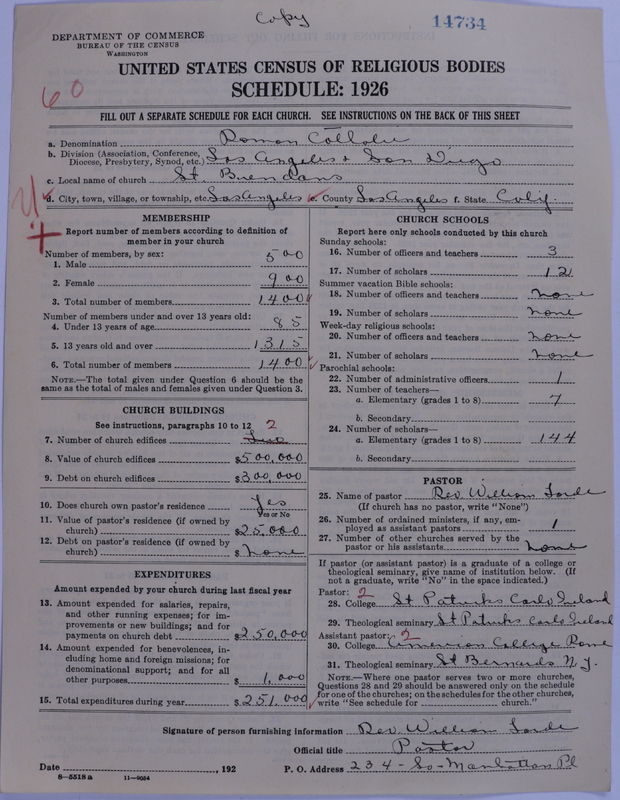 Copy
14734
DEPARTMENT OF COMMERCE
BUREAU OF THE CENSUS
WASHINGTON
UNITED STATES CENSUS OF RELIGIOUS BODIES
SCHEDULE: 1926
60
FILL OUT A SEPARATE SCHEDULE FOR EACH CHURCH. SEE INSTRUCTIONS ON THE BACK OF THIS SHEET
a. Denomination Roman Catholic
b. Division (Association, Conference, Diocese, Presbytery, Synod, etc.) Los Angeles & San Diego
c. Local name of church St. Brendans
d. City, town, village, or township, etc. Los Angeles e. County Los Angeles f. State Calif.
MEMBERSHIP
Report number of members according to definition of
member in your church
Number of members, by sex:
1. Male 500
2. Female 900
3. Total number of members 1400
Number of members under and over 13 years old:
4. Under 13 years of age 85
5. 13 years old and over 1315
6. Total number of members 1400
NOTE.—The total given under Question 6 should be the
same as the total of males and females given under Question 3.
CHURCH BUILDINGS
See instructions, paragraphs 10 to 12 2
7. Number of church edifices
8. Value of church edifices $500,000
9. Debt on church edifices $300,000
10. Does church own pastor's residence Yes
Yes or No
11. Value of pastor's residence (if owned by
church) $25,000
12. Debt on pastor's residence (if owned by
church) $none
EXPENDITURES
Amount expended by your church during last fiscal year
13. Amount expended for salaries, repairs,
and other running expenses; for im-
provements or new buildings; and for
payments on church debt $250,000
14. Amount expended for benevolences, in-
cluding home and foreign missions; for
denominational support; and for all
other purposes $1,000
15. Total expenditures during year $251,000
CHURCH SCHOOLS
Report here only schools conducted by this church
Sunday schools:
16. Number of officers and teachers 3
17. Number of scholars 121
Summer vacation Bible schools:
18. Number of officers and teachers none
19. Number of scholars none
Week-day religious schools:
20. Number of officers and teachers none
21. Number of scholars none
Parochial schools:
22. Number of administrative officers 1
23. Number of teachers—
a. Elementary (grades 1 to 8) 7
b. Secondary
24. Number of scholars—
a. Elementary (grades 1 to 8) 144
b. Secondary
PASTOR
25. Name of pastor Rev. William Forde
(If church has no pastor, write "None")
26. Number of ordained ministers, if any, em-
ployed as assistant pastors 1
27. Number of other churches served by the
pastor or his assistants none
If pastor (or assistant pastor) is a graduate of a college or
theological seminary, give name of institution below. (If
not a graduate, write "No" in the space indicated.)
Pastor: 2
28. College St Patricks Carlo Ireland
29. Theological seminary St Patricks Carlo Ireland
Assistant pastor: 2
30. College American College Rome
31. Theological seminary St Bernards N.Y.
NOTE.—Where one pastor serves two or more churches,
Questions 28 and 29 should be answered only on the schedule
for one of the churches; on the schedules for the other churches,
write "See schedule for church."
Signature of person furnishing information Rev. William Forde
Official title Pastor
Date , 192 P. O. Address 234 - So - Manhattan Pl
8—5518 a 11—9054